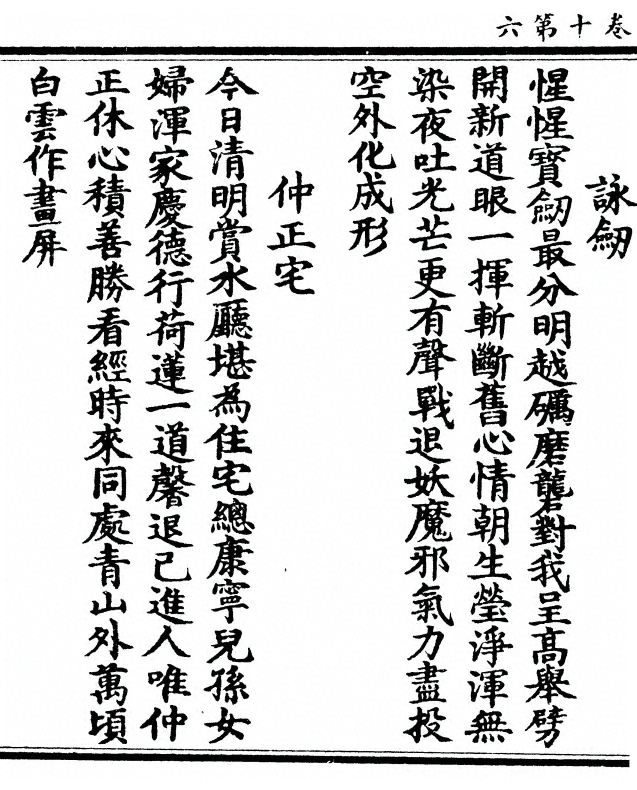 卷十第六
詠劒
惺惺寶劒最分明越礪磨礱對我呈高舉劈
開新道眼一揮斬斷舊心情朝生瑩淨渾無
染夜吐光芒更有聲戰退妖魔邪氣力盡投
空外化成形
仲正宅
今日清明賞水廳堪為住宅總康寧兒孫女
婦渾家慶德行荷蓮一道馨退己進人唯仲
正休心積善勝看經時來同處青山外萬頃
白雲作畫屏